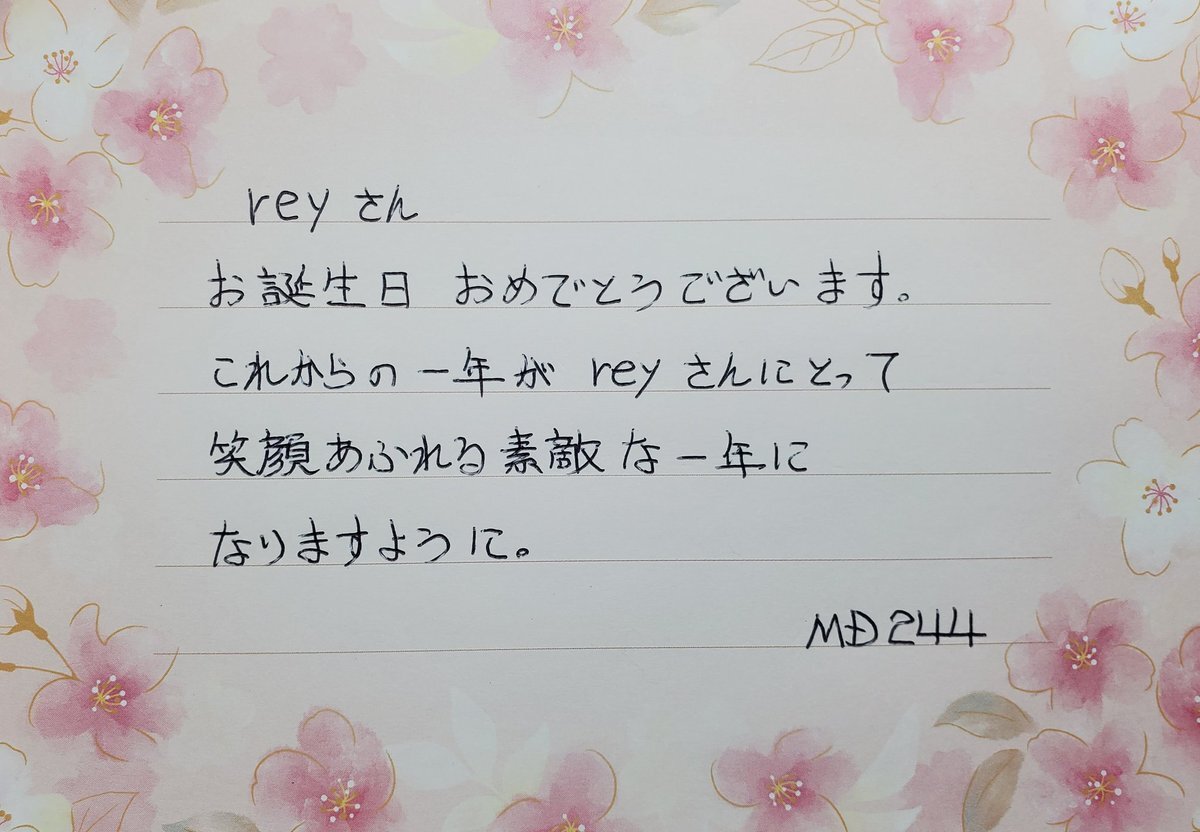 reyさん
お誕生日 おめでとうございます。
これからの一年が reyさんにとって
笑顔あふれる素敵な一年に
なりますように。
MD244